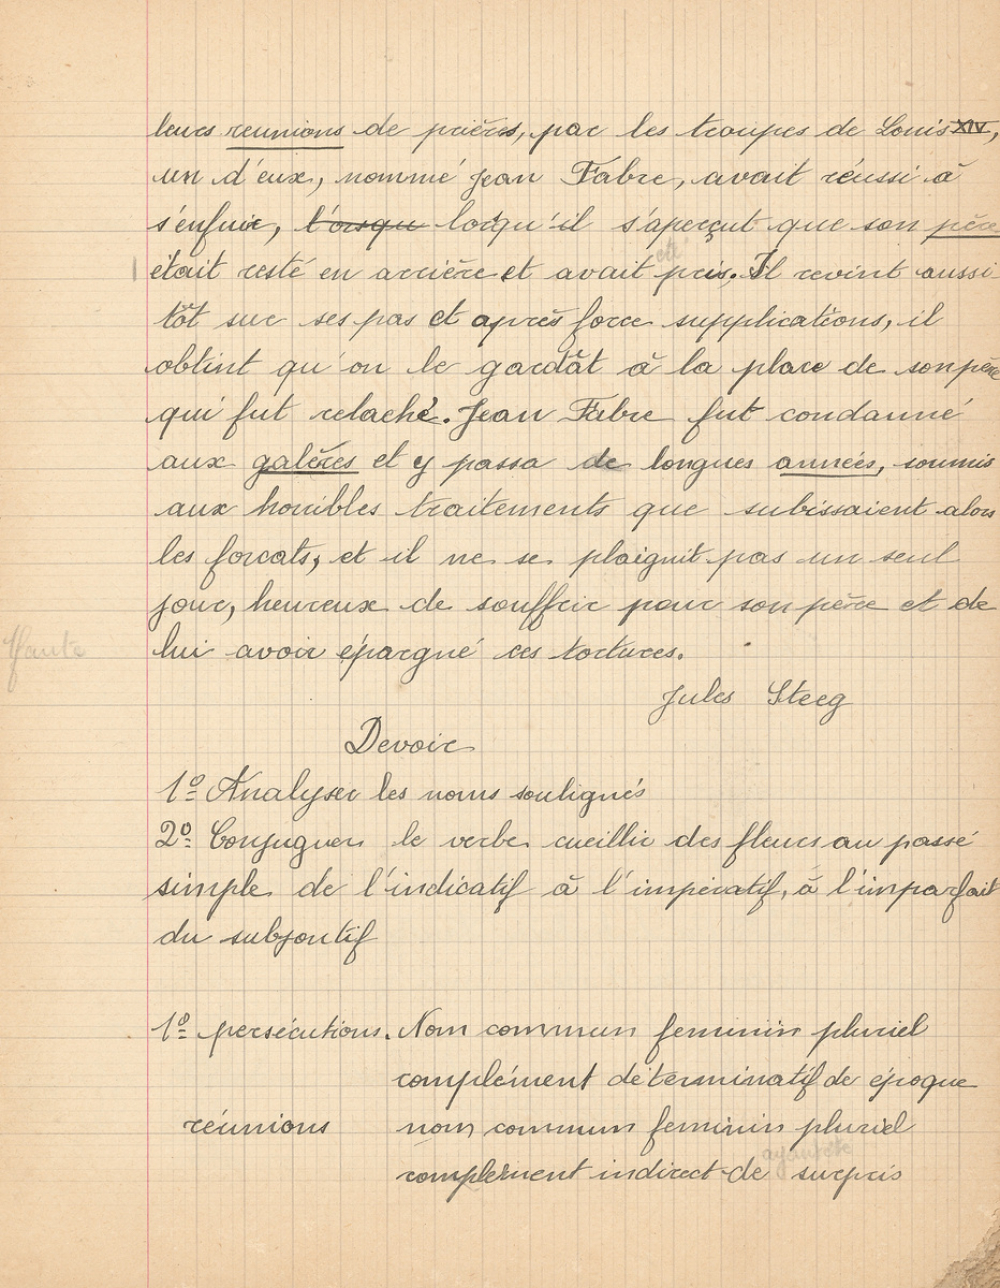 leurs reunions de prières, par les troupes de Louis XIV,
un d'eux, nommé Jean Fabre, avait réussi à
s'enfuir, l'orsqu lorsqu'il s'aperçut que son père
était resté en arrière et avait été pris. Il revint aussi
tôt sur ses pas et après force supplications, il
obtint qu'on le gardât à la place de son père
qui fut relaché. Jean Fabre fut condamné
aux galères et y passa de longues années, soumis
aux horribles traitements que subissaient alors
les forcats, et il ne se plaignit pas un seul
jour, heureux de souffrir pour son père et de
1 faute
lui avoir épargné ces tortures.
Jules Steeg
Devoir
1º Analyser les noms soulignés
2º Conjuguer le verbe cueillir des fleurs au passé
simple de l'indicatif à l'impératif, à l'imparfait
du subjontif
1º persécutions. Nom commun feminin pluriel
complément déterminatif de époque
réunions nom commun feminin pluriel
ayant été
complément indirect de surpris